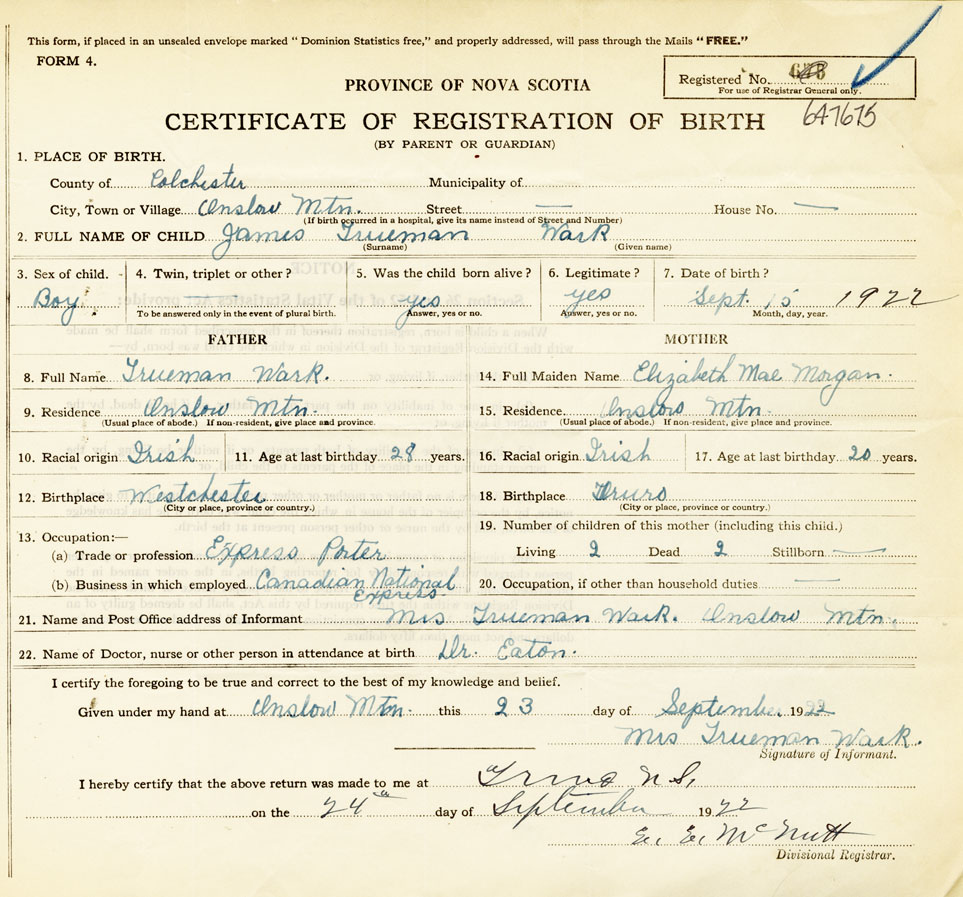 This form, if placed in an unsealed envelope marked “ Dominion Statistics free,” and properly addressed, will pass through the Mails “ FREE.”
FORM 4.
Registered No.
For use of Registrar General only.
PROVINCE OF NOVA SCOTIA
647675
CERTIFICATE OF REGISTRATION OF BIRTH
(BY PARENT OR GUARDIAN)
1. PLACE OF BIRTH.
County of Colchester Municipality of
City, Town or Village Onslow Mtn. Street — House No. —
(If birth occurred in a hospital, give its name instead of Street and Number)
2. FULL NAME OF CHILD James Trueman Wark
(Surname) (Given name)
3. Sex of child. 4. Twin, triplet or other ? 5. Was the child born alive ? 6. Legitimate ? 7. Date of birth ?
Boy — yes yes Sept. 15 1922
To be answered only in the event of plural birth. Answer, yes or no. Answer, yes or no. Month, day, year.
FATHER MOTHER
8. Full Name Trueman Wark. 14. Full Maiden Name Elizabeth Mae Morgan.
9. Residence Onslow Mtn. 15. Residence. Onslow Mtn.
(Usual place of abode.) If non-resident, give place and province. (Usual place of abode.) If non-resident, give place and province.
10. Racial origin Irish 11. Age at last birthday 28 years. 16. Racial origin Irish 17. Age at last birthday 20 years.
12. Birthplace Westchester 18. Birthplace Truro
(City or place, province or country.) (City or place, province or country.)
19. Number of children of this mother (including this child.)
13. Occupation:—
(a) Trade or profession Express Porter Living 2 Dead 2 Stillborn —
(b) Business in which employed Canadian National Express 20. Occupation, if other than household duties —
21. Name and Post Office address of Informant Mrs Trueman Wark. Onslow Mtn.
22. Name of Doctor, nurse or other person in attendance at birth Dr. Eaton.
I certify the foregoing to be true and correct to the best of my knowledge and belief.
Given under my hand at Onslow Mtn. this 23 day of September 1922
Mrs Trueman Wark.
Signature of Informant.
I hereby certify that the above return was made to me at Truro N.S.
on the 24th day of September 1922
E. E. McNutt
Divisional Registrar.